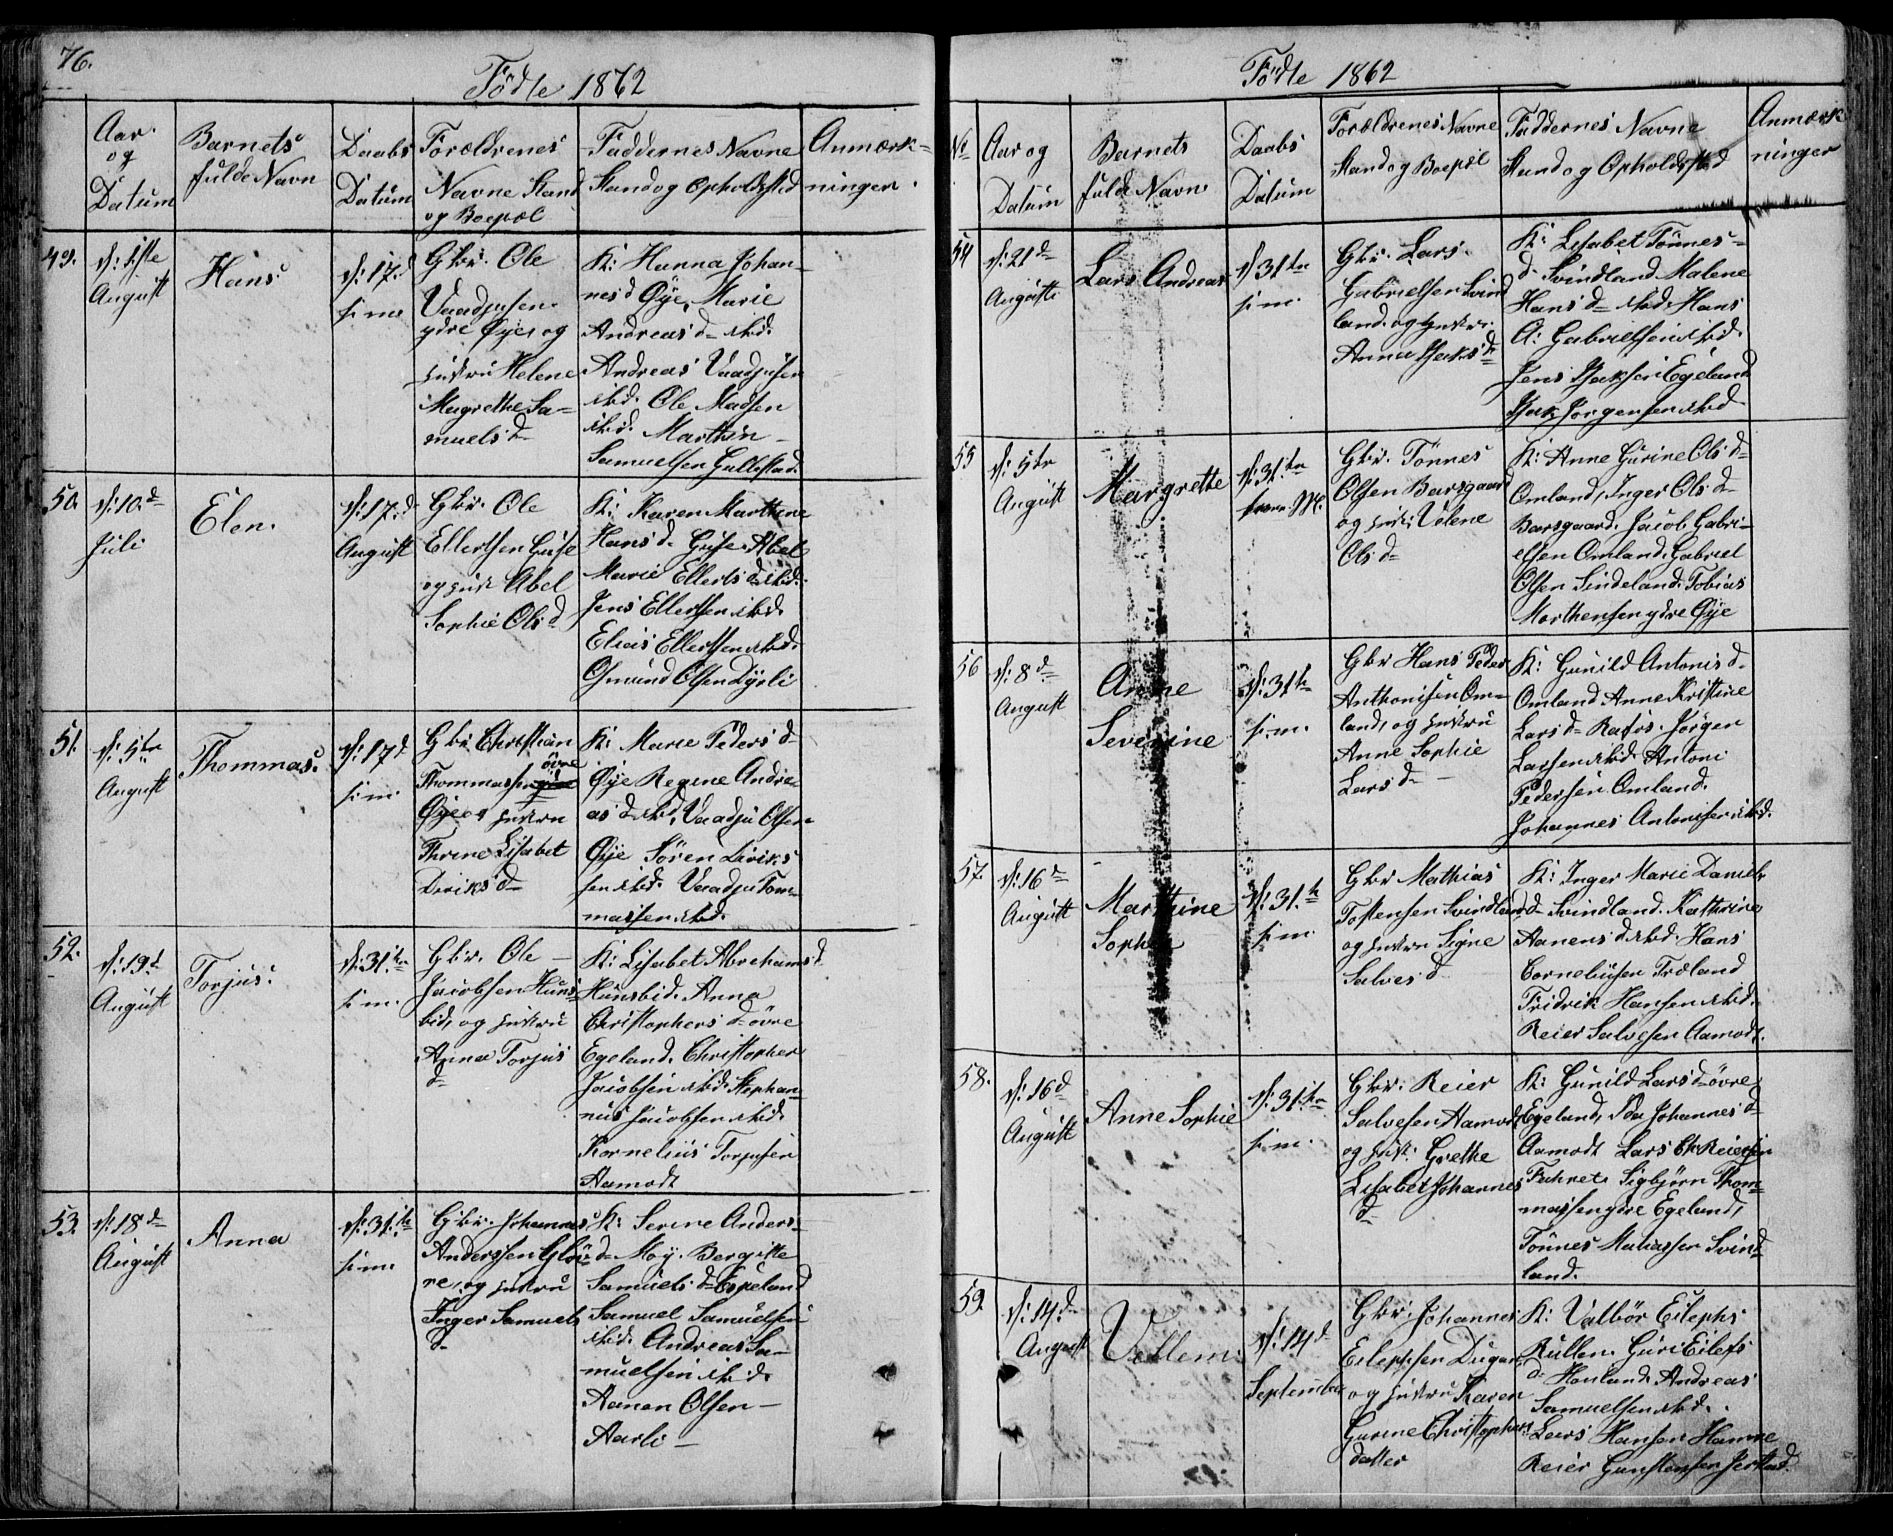 76.
Födte 1862
Aar og Datum
Barnets fulde Navn
Daabs Datum
Forældrenes Navne Stand og Boepæl
Faddernes Navne Stand og Opholdssted
Anmærkninger.
49.
d: 1ste
August
Hans
d: 17.d
s: m:
Gbr. Ole
Vaadjusen
ydre Øye, og
Hustru Helene
Magrethe Sa-
muelsd
K: Hanna Johan-
nesd Øye, Marie
Andreas d- ibid.
Andreas Vaadjusen
ibid. Ole Madsen
ibid. Marthin
Samuelsen Gullestad.
50.
d: 10.d
Juli
Elen.
d: 17.d
August
Gbr. Ole
Ellertsen Guse
og Hust Abel
Sophie Olsd
K: Karen Marthine
Hansd. Guse. Abel
Marie Ellertsd ibid.
Jens Ellertsen ibid.
Elias Ellertsen ibid.
Osmund Olsen Dyrli
51.
d: 5te
August
Thommas.
d: 17d
s: m:
Gbr. Christian
övre
Thommassen ydre
Øye og Hustru
Thrine Lisabet
Diriksd
K: Marie Peders d
Øye Regine Andre-
as d ibid, Vaadju Olsen
Øye Sören Diriks
sen ibid. Vaadju Tom-
massen ibid.
52.
d: 19d
August
Torjus.
d: 31.te
s: m.
Gbr. Ole
Jacobsen Huns-
bid, og Hustru
Anna Torjus
d
K: Lisabet Abrahamsd
Hunsbid. Anna
Christophers d övre
Egeland. Christopher
Jacobsen ibid. Stephan-
nus Jacobsen ibid.
Kornelius Torjusen
Aamodt
53.
d: 18d
August
Anna
d: 31.te
s: m.
Gbr. Johannes
Anderssen Glöv-
re, og Hustru
Inger Samuels
d
K: Serine Anders-
d Moy. Bergitte
Samuels d Espeland
Samuel Samuelsen
ibid. Andreas Sa-
muelsen ibid.
Aanon Olsen
Aarli
Födte 1862
No
Aar og Datum
Barnets fulde Navn
Daabs Datum
Forældrenes Navne
Stand og Boepæl
Faddernes Navne
Stand og Opholdssted
Anmærkninger
54
d: 21d
Augusti
Lars Andreas
d 31te
s: m.
Gbr. Lars
Gabrielsen Svind
land. og Hustru.
Anna Isaks d
K: Lisabet Tönnes-
d Svindland. Malene
Hans d ibid. Hans
A: Gabrielsen ibid.
Jens Isaksen Egeland
Isak Jörgensen ibid
55
d: 5te
August
Margrethe
d: 31.te
Gbr. Tönnes
Olsen Barsgaard
og Hust: Volene
Olsd
K: Anne Gurine Ols d
Omland, Inger Ols d
Barsgaard. Jacob Gabri-
elsen Omland. Gabriel
Olsen Sindeland. Tobias
Morthensen ydre Øye
56
d: 8d
August
Anne
Severine
d: 31te
s: m.
Gbr Hans Peder
Anthonisen Om-
land, og Hustru
Anne Sophie
Lars d
K: Gunild Antonis d.
Omland Anne Kristine
Lars d Rafos. Jörgen
Larsen ibid. Antoni
Pedersen Omland.
Johannes Antonisen ibid.
57.
d: 16d
August
Marthine
Sophie
d: 31.te
s: m.
Gbr Mathias
Tostensen Svindland
og Hustru Signe
Salves d
K: Inger Marie Daniels
d Svindland. Kathrine
Aanens d ibid. Hans
Corneliusen Træland
Fridrik Hansen ibid.
Reier Salvesen Aamodt.
58.
d: 16d
August
Anne Sophie
d: 31.te
s: m.
Gbr. Reier
Salvesen Aamodt
og Hust: Grethe
Lisabet Johannes
d
K: Gunild Lars d övre
Egeland, Johannes d
Aamodt Lars Chr Reiersen
Sigbjörn Thom-
massen ydre Egeland,
Tönnes Mathiassen Svind-
land.
59.
d: 14.d
August
Vellem.
d: 14d
September
Gbr. Johannes
Eilephsen
og Hustru Karen
Gurine Christophers
datter
K: Valbör Eilephs
Rullen. Guri Eilefs
d Houland. Andreas
Samuelsen ibid.
Lars Hansen Hamre
Reier Gunstensen Jerstad.